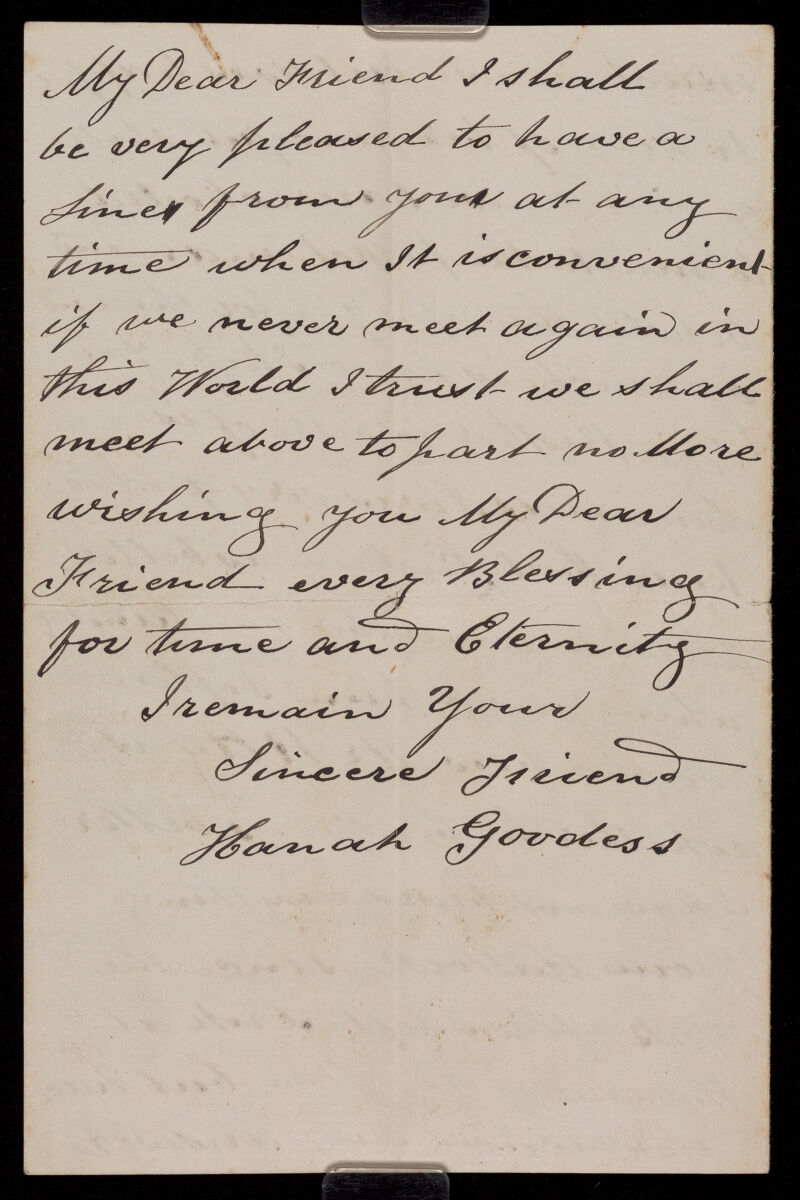 My Dear Friend I shall
be very pleased to have a
line from you at any
time when It is convenient
if we never meet again in
this World I trust we shall
meet above to part no More
wishing you My Dear
Friend every Blessing
for time and Eternity
I remain Your
Sincere Friend
Hanah Goodess